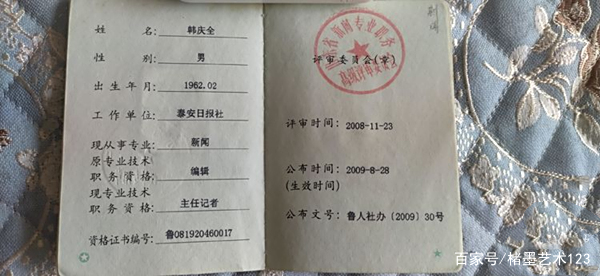 姓名: 韩庆全
性别: 男
出生年月: 1962.02
工作单位: 泰安日报社
现从事专业: 新闻
原专业技术
职务资格: 编辑
现专业技术
职务资格: 主任记者
资格证书编号: 鲁081920460017
评审委员会(章)
评审时间: 2008-11-23
公布时间: 2009-8-28
(生效时间)
公布文号: 鲁人社办〔2009〕30号
百家号/楮墨艺术123